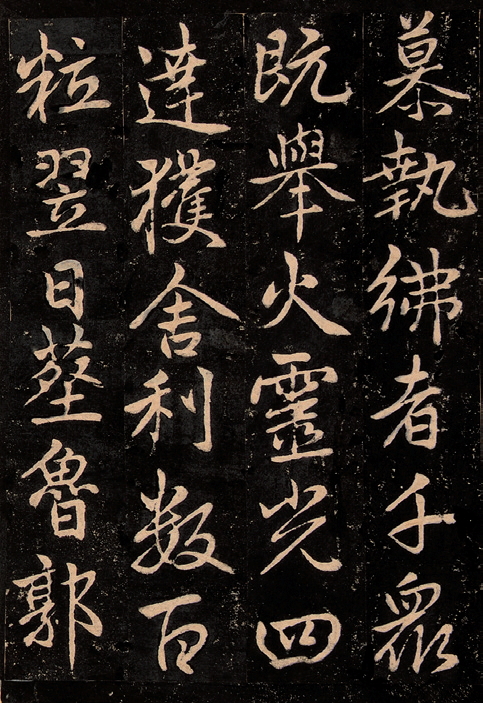 慕執紼者千眾
既舉火靈光四
達獲舍利數百
粒翌日塟魯郭